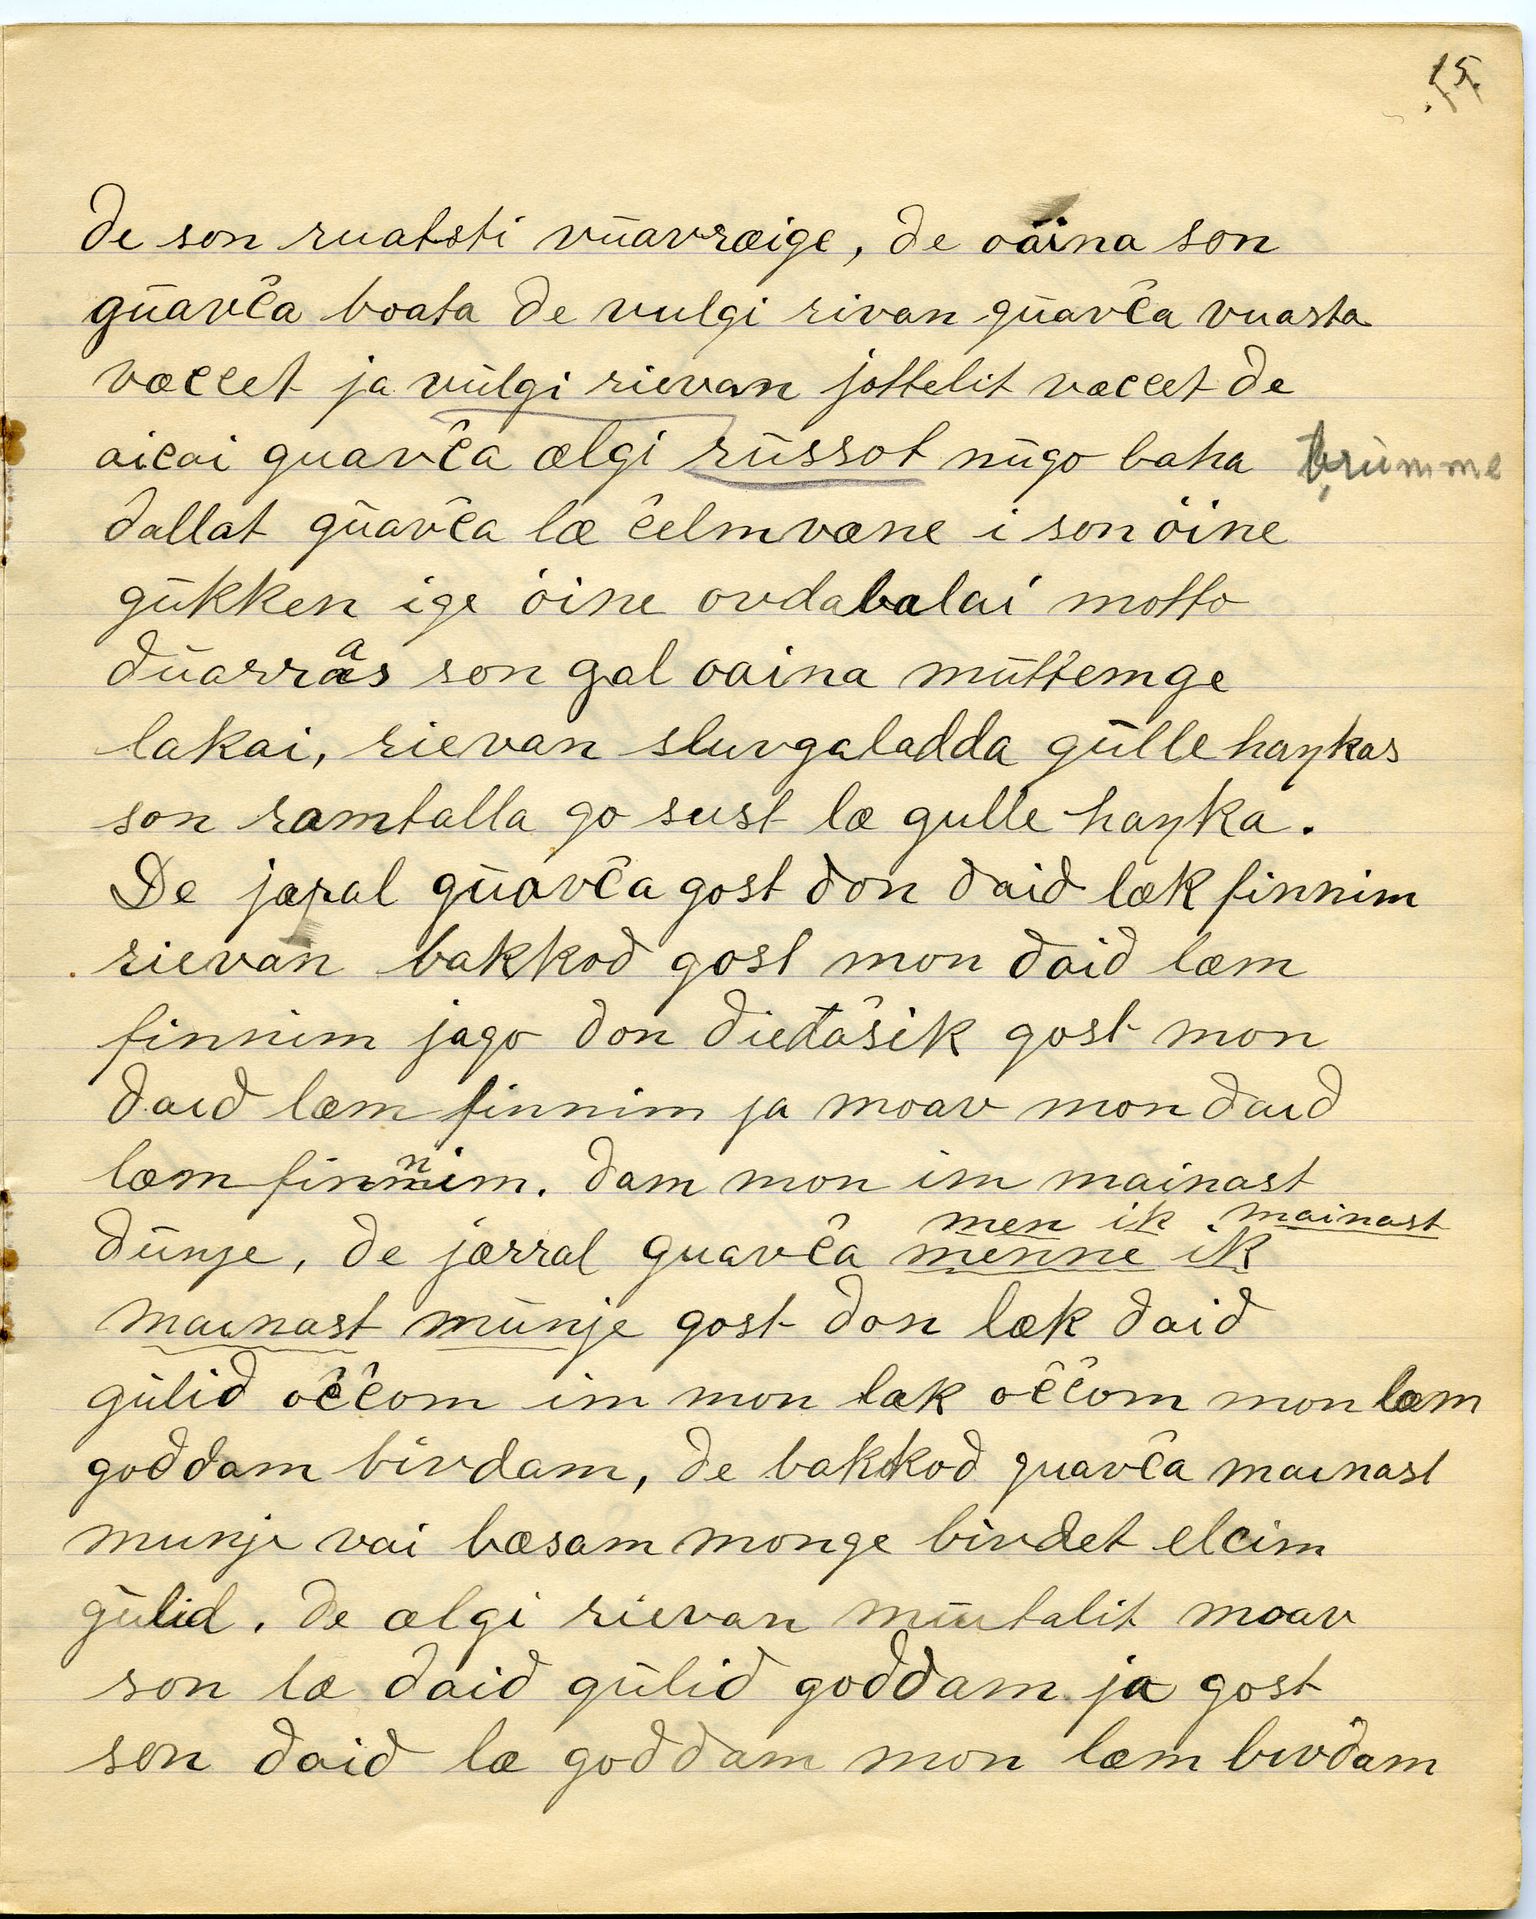 15.
de son ruatsti vūavræige, de oaina son
gūavĉa boata de vulgi rivan gūavĉa vuasta
væccet ja vūlgi rievan jottelit væccet de
aicai guavĉa ælgi rūssot nūgo baha brūmme
dallat gūavĉa læ ĉelmvæne i son óine
gūkken ige óine ovdabalai motto
dūarraas son gal oaina mūttemge
lakai, rievan sluvgaladda gūlle haŋkas
son ramtalla go sust læ gulle haŋka.
De jærral gūavĉa gost don daid læk finnim
rievan bakkod gost mon daid læm
finnim jago don dieđâŝik gost mon
daid læm finnim ja moav mon daid
læm finnim. dam mon im mainast
men ik mainast
dūnje, de jærral guavĉa menne ik
mainast mūnje gost don læk daid
gūlid oĉĉom im mon læk oĉĉom mon læm
goddam bivdam, de bakkod guavĉa mainast
munje vai bæsam monge bivdet elcim
gūlid. de ælgi rievan mūitalit moav
son læ daid gūlid goddam ja gost
son daid læ goddam mon læm bivdam